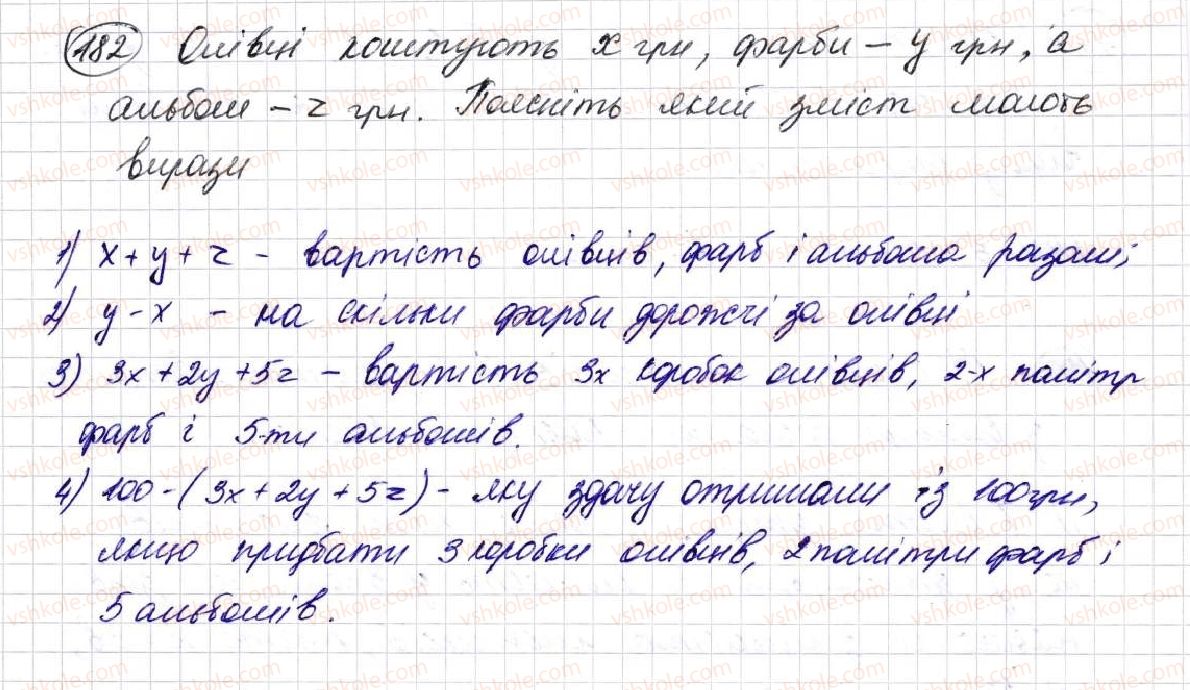 182 Олівці коштують x грн, фарби – y грн, а
альбом – z грн. Поясніть який зміст мають
вирази
1) x + y + z – вартість олівців, фарб і альбома разом;
2) y - x – на скільки фарби дорожчі за олівці
3) 3x + 2y + 5z – вартість 3х коробок олівців, 2-х палітр
фарб і 5-ти альбомів.
4) 100 - (3x + 2y + 5z) – яку здачу отримали із 100 грн,
якщо придбати 3 коробки олівців, 2 палітри фарб і
5 альбомів.